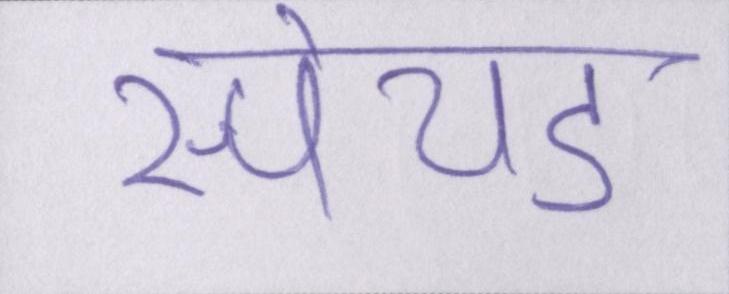 स्पेयड